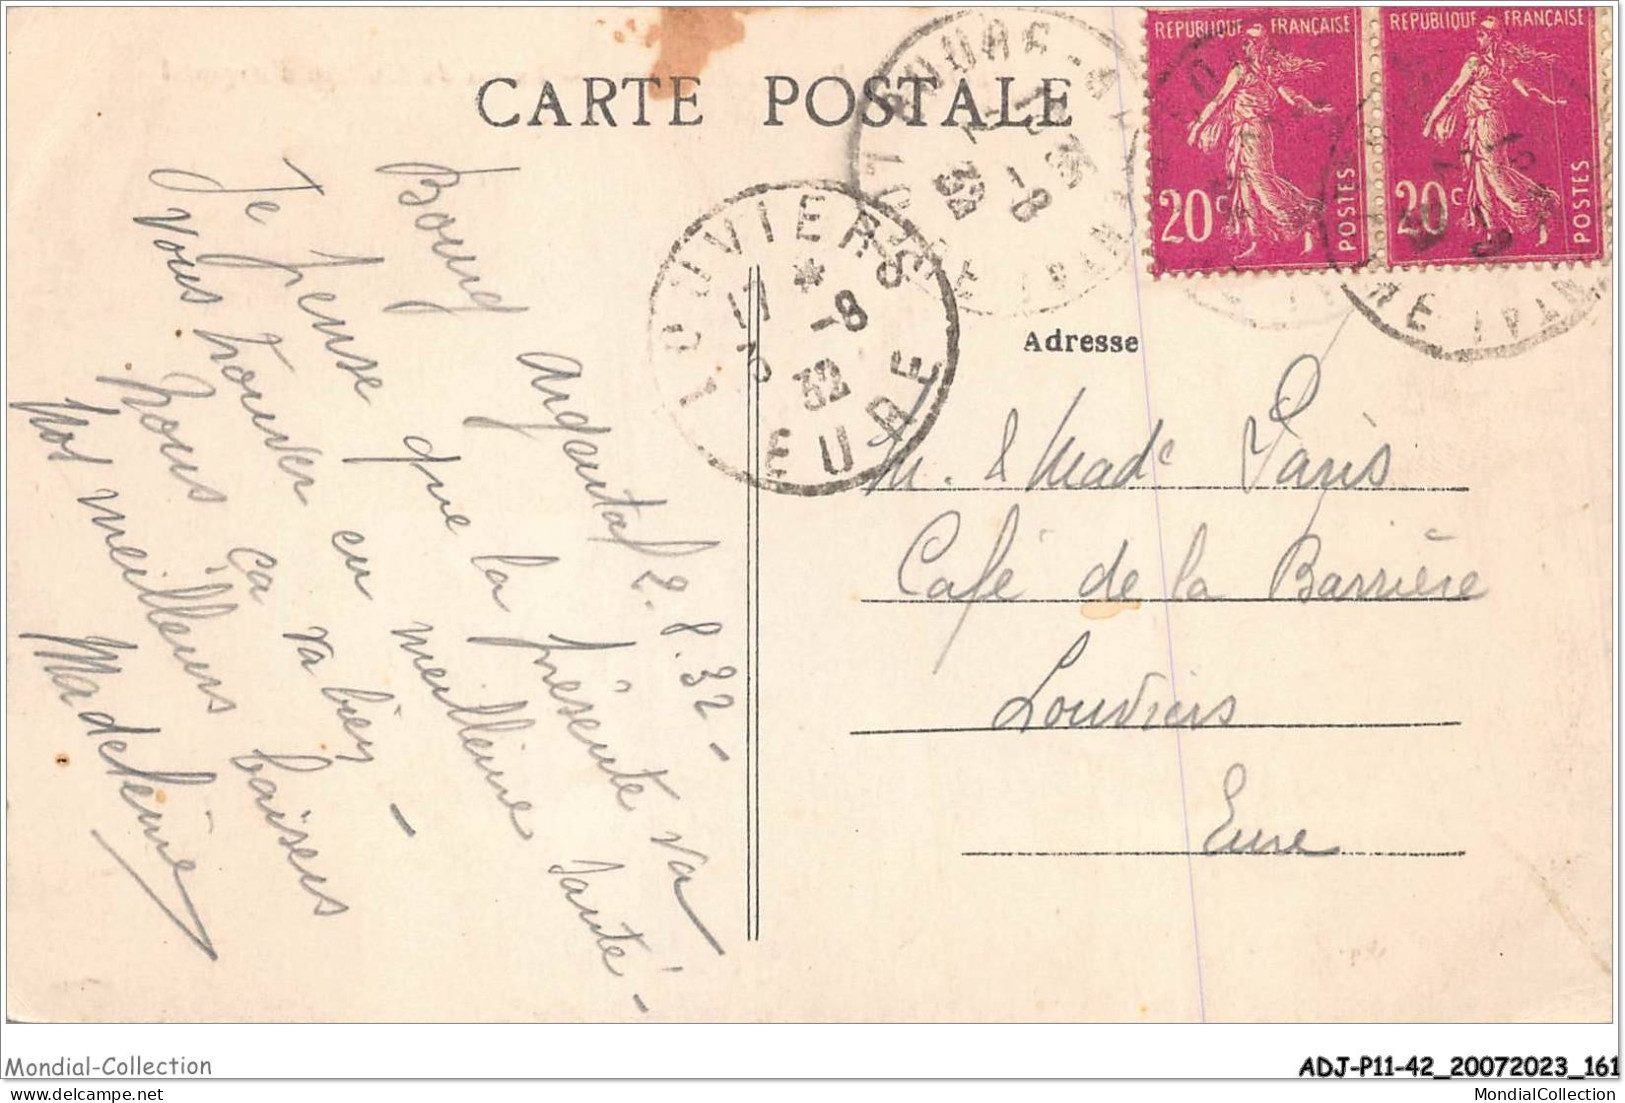 CARTE POSTALE
REPUBLIQUE FRANÇAISE
20c POSTES
REPUBLIQUE FRANÇAISE
20c POSTES
LOUVIERS
-8
32
EURE
Adresse
M. & Made Paris
Café de la Barrière
Louviers
Eure
Bourg Argental 2.8.32 -
Je pense que la présente va
vous trouver en meilleure santé -
nous ça va bien -
Nos meilleurs baisers
Madeleine
Mondial-Collection
ADJ-P11-42_20072023_161
MondialCollection
MondialCollection